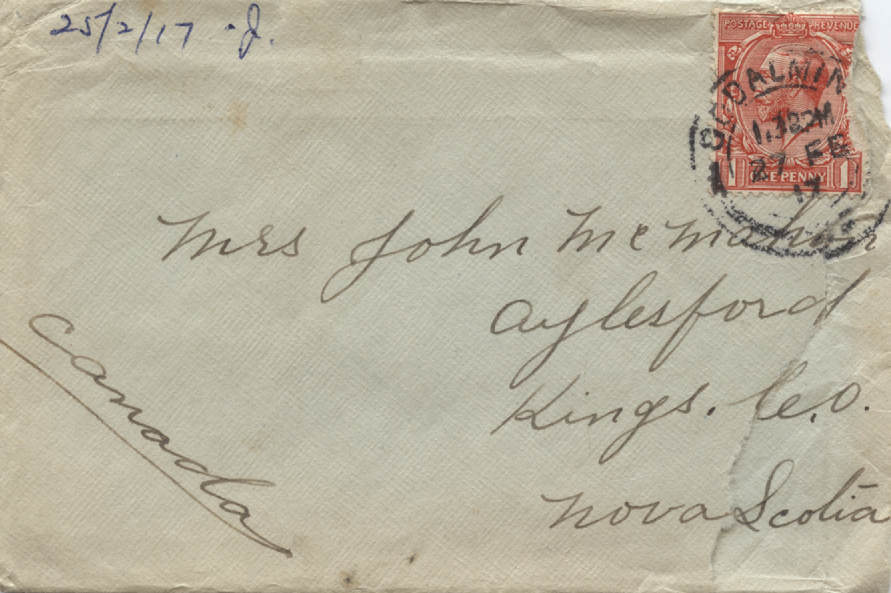 25/2/17 . J.
POSTAGE REVENUE
GODALMIN
12 PM
27 FE
17
ONE PENNY
1 1
Mrs John McMahon
Aylesford
Kings. Co.
Nova Scotia
Canada